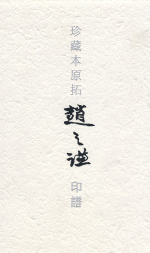 珍藏本原拓
趙之謙
印譜